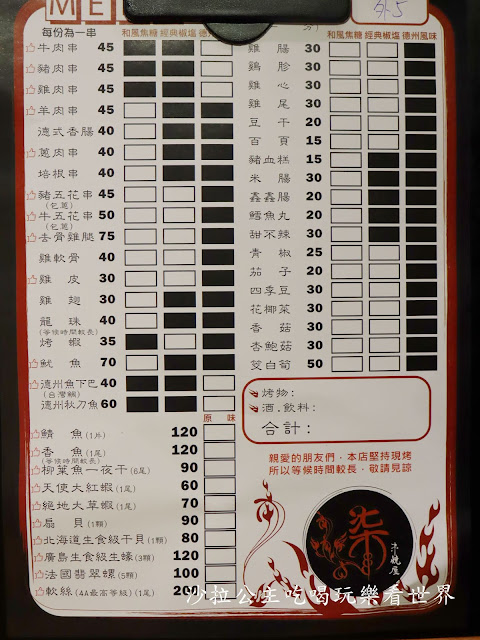 ME
外5
每份為一串
和風焦糖 經典椒塩 德州風味
牛肉串 45
豬肉串 45
雞肉串 45
羊肉串 45
德式香腸 40
蔥肉串 40
培根串 40
豬五花串 45
(包蔥)
牛五花串 50
(包蔥)
去骨雞腿 75
雞軟骨 40
雞皮 30
雞翅 30
龍珠 40
(等候時間較長)
烤蝦 35
魷魚 70
德州魚下巴 40
(台灣鯛)
德州秋刀魚 60
原味
鯖魚(1片) 120
香魚(1尾) 120
(等候時間較長)
柳葉魚一夜干(6尾) 90
天使大紅蝦(1尾) 60
絕地大草蝦(1尾) 70
扇貝(1顆) 90
北海道生食級干貝(1顆) 80
廣島生食級生蠔(3顆) 120
法國翡翠螺(5顆) 100
軟絲(4A最高等級)(1尾) 200
份)
和風焦糖 經典椒塩 德州風味
雞腸 30
雞胗 30
雞心 30
雞尾 30
豆干 20
百頁 15
豬血糕 15
米腸 30
鑫鑫腸 20
鱈魚丸 20
甜不辣 30
青椒 25
茄子 20
四季豆 30
花椰菜 30
香菇 30
杏鮑菇 30
筊白筍 50
烤物:
酒.飲料:
合計:
親愛的朋友們,本店堅持現烤
所以等候時間較長,敬請見諒
柒
串燒屋
沙拉公主吃喝玩樂看世界